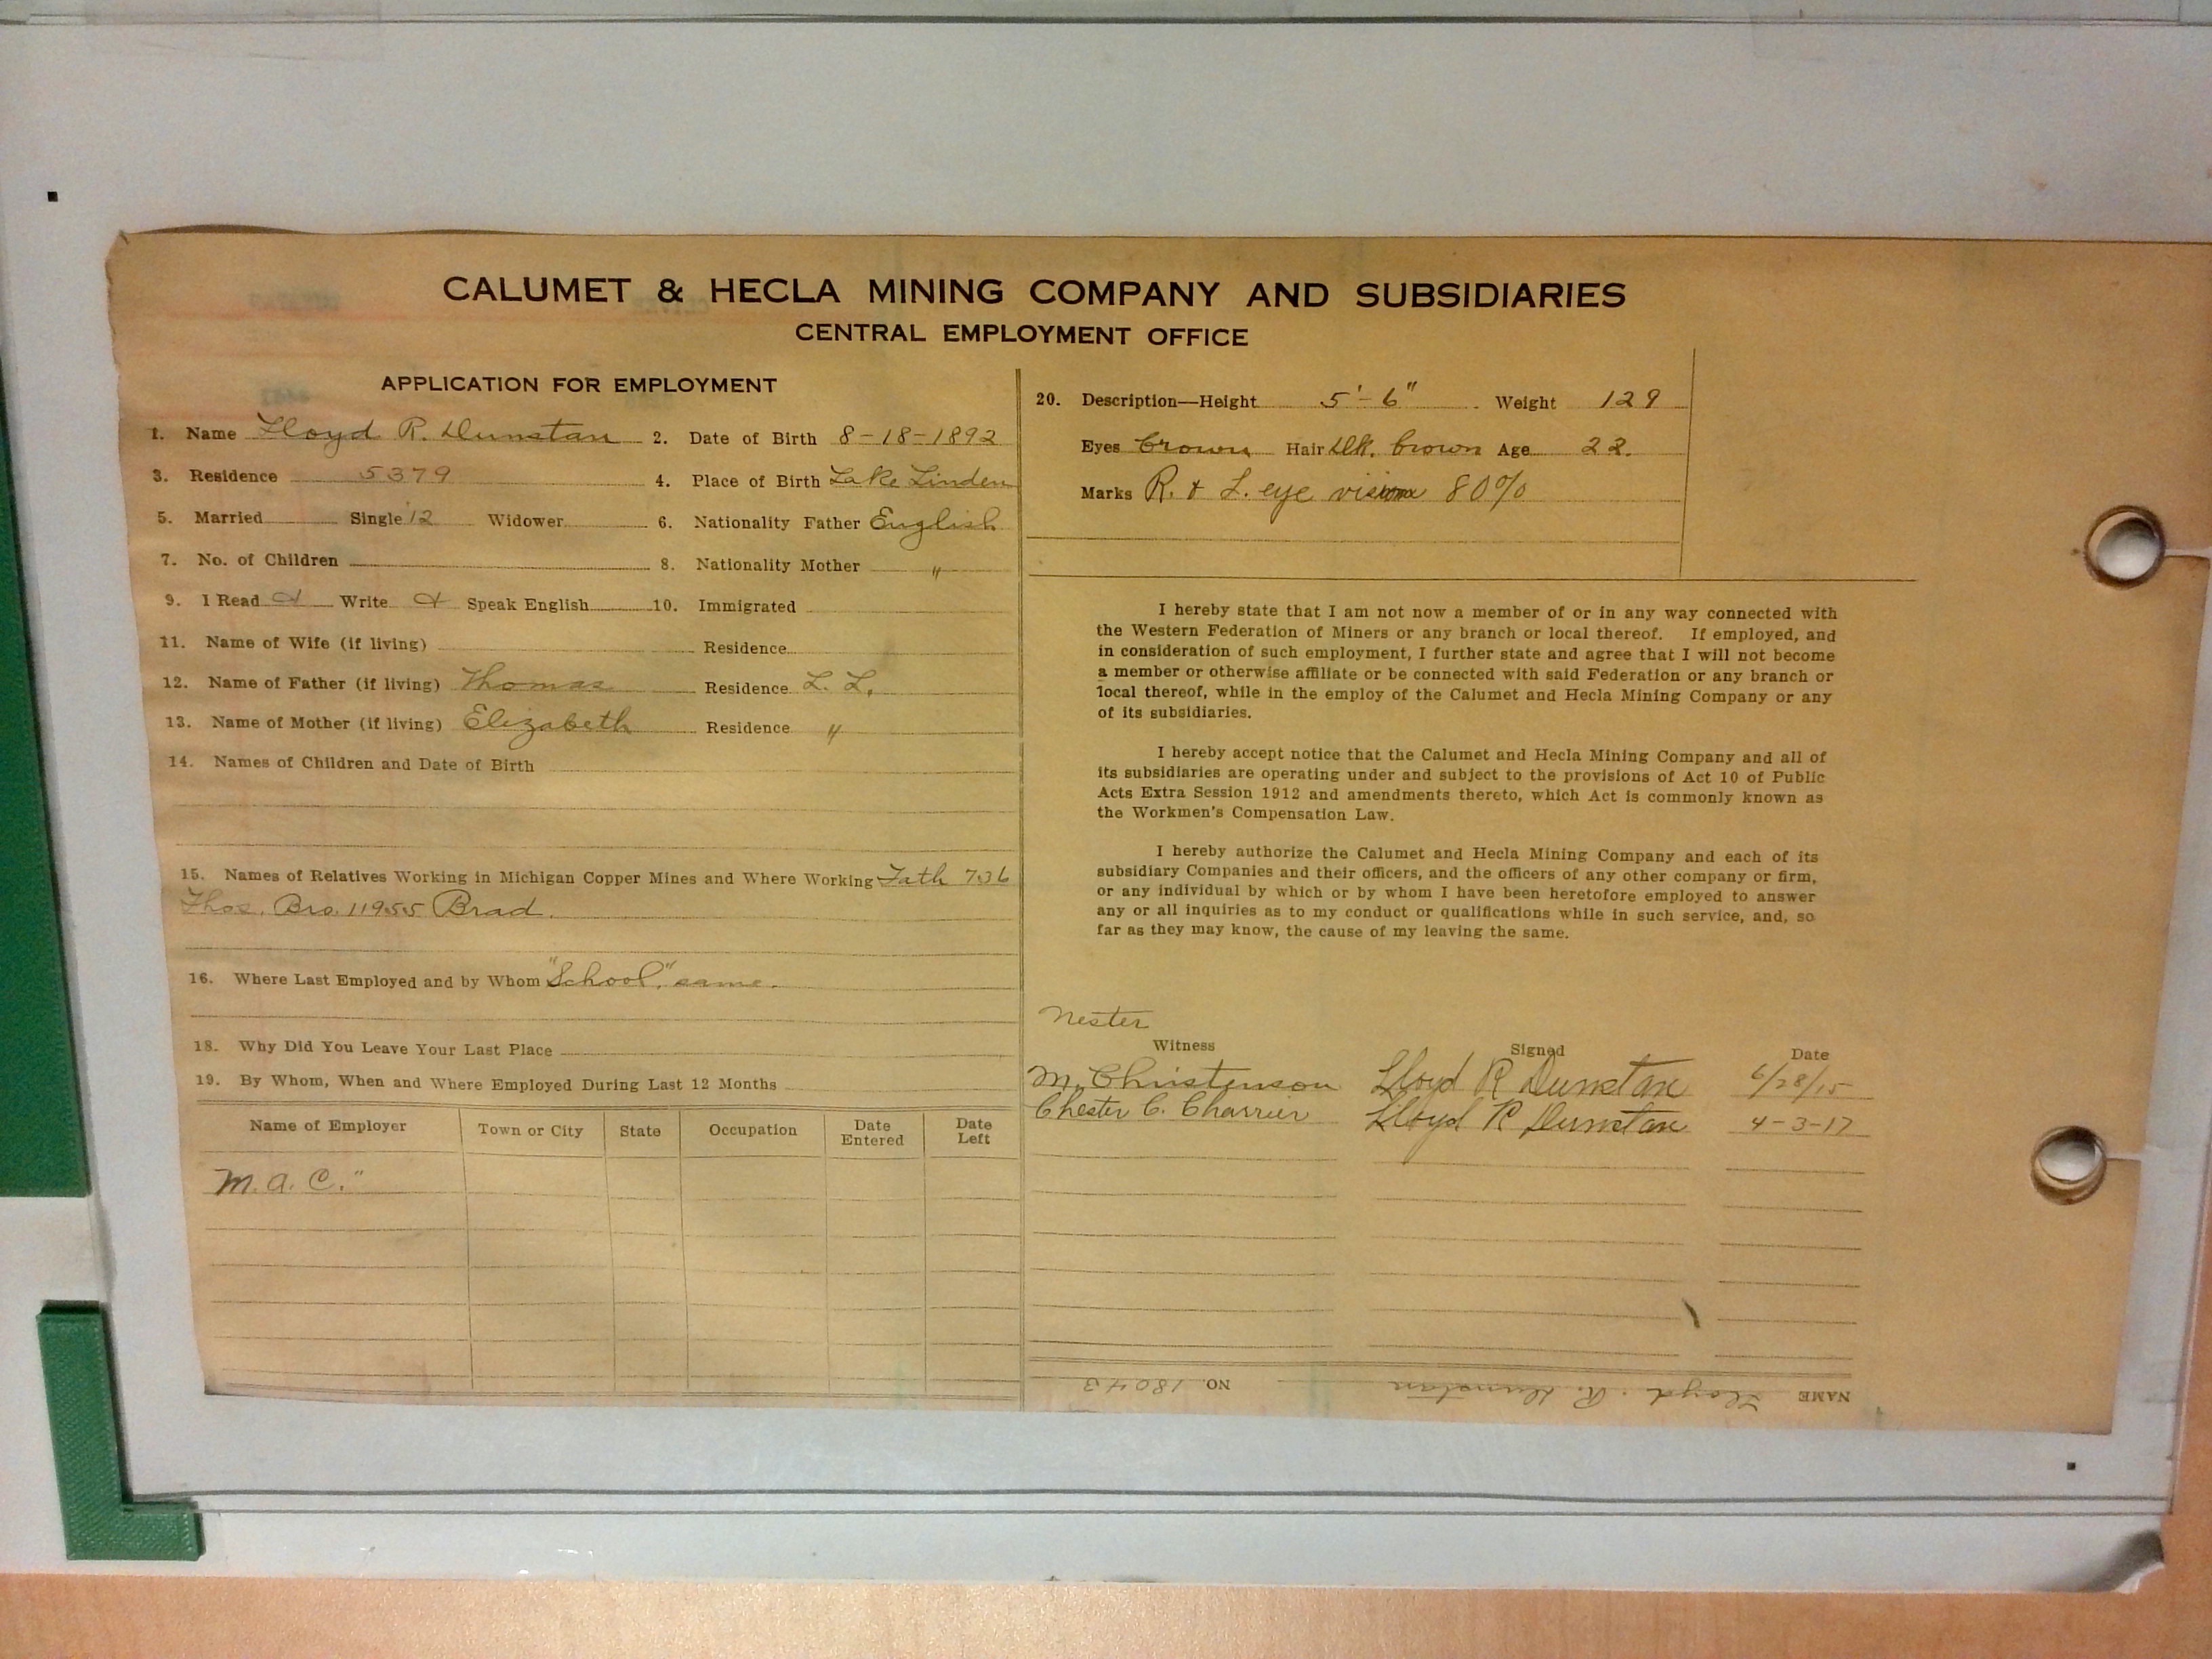 CALUMET & HECLA MINING COMPANY AND SUBSIDIARIES
CENTRAL EMPLOYMENT OFFICE
APPLICATION FOR EMPLOYMENT
1. Name Lloyd R. Dunstan 2. Date of Birth 8-18-1892
3. Residence 5379 4. Place of Birth Lake Linden
5. Married Single '12 Widower 6. Nationality Father English
7. No. of Children 8. Nationality Mother "
9. I Read & Write & Speak English 10. Immigrated
11. Name of Wife (if living) Residence
12. Name of Father (if living) Thomas Residence L. L.
13. Name of Mother (if living) Elizabeth Residence "
14. Names of Children and Date of Birth
15. Names of Relatives Working in Michigan Copper Mines and Where Working Fath 736
Thos. Bro. 11955 Brad.
16. Where Last Employed and by Whom "School", same.
18. Why Did You Leave Your Last Place
19. By Whom, When and Where Employed During Last 12 Months
Name of Employer Town or City State Occupation Date Entered Date Left
M. A. C."
20. Description—Height 5'-6" Weight 129
Eyes brown Hair Dk. brown Age 22.
Marks R. & L. eye vision 80%
I hereby state that I am not now a member of or in any way connected with
the Western Federation of Miners or any branch or local thereof. If employed, and
in consideration of such employment, I further state and agree that I will not become
a member or otherwise affiliate or be connected with said Federation or any branch or
local thereof, while in the employ of the Calumet and Hecla Mining Company or any
of its subsidiaries.
I hereby accept notice that the Calumet and Hecla Mining Company and all of
its subsidiaries are operating under and subject to the provisions of Act 10 of Public
Acts Extra Session 1912 and amendments thereto, which Act is commonly known as
the Workmen's Compensation Law.
I hereby authorize the Calumet and Hecla Mining Company and each of its
subsidiary Companies and their officers, and the officers of any other company or firm,
or any individual by which or by whom I have been heretofore employed to answer
any or all inquiries as to my conduct or qualifications while in such service, and, so
far as they may know, the cause of my leaving the same.
Nester
Witness Signed Date
M. Christenson Lloyd R Dunstan 6/28/15
Chester C. Charrier Lloyd R Dunstan 4-3-17
NAME Lloyd. R. Dunstan NO. 18043